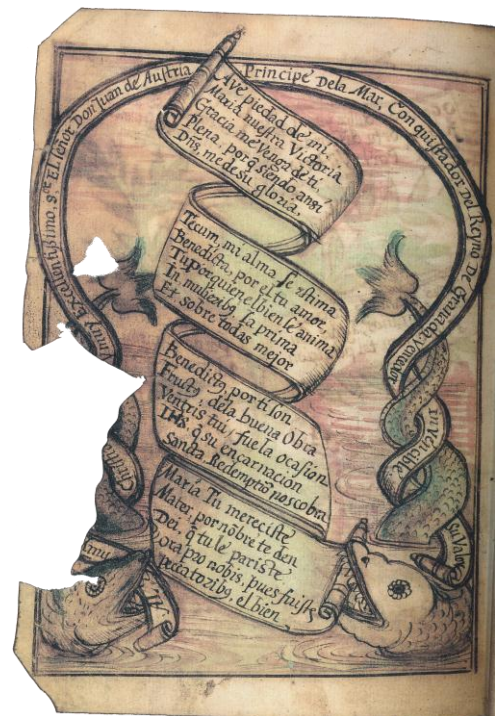 Al muy
Christi
y muy Excelentissimo, s.or El señor Don Juan de Austria
Principe Dela Mar, Conquistador Del Reyno De Granada Vencedor
invencible
su valor
Ave piedad de mi.
Maria nuestra Victoria
Gracia me venga de ti.
Plena, porq̃ siendo ansi
Dñs, me de su gloria.
Tecum, mi alma se estima
Benedicta, por el tu amor
Tu porquien el bien se anima
In mulierib9 la prima
Et sobre todas mejor
Benedicto, por ti son
Fructo, dela buena Obra
Ventris tui, fue la ocasion
IHS. q̃ su encarnacion
Santa Redemptiõ nos cobra
Maria Tu mereciste
Mater, por nõbre te den
Dei, q̃ tu le pariste
Ora pro nobis, pues fuiste
Peccatorib9, el bien